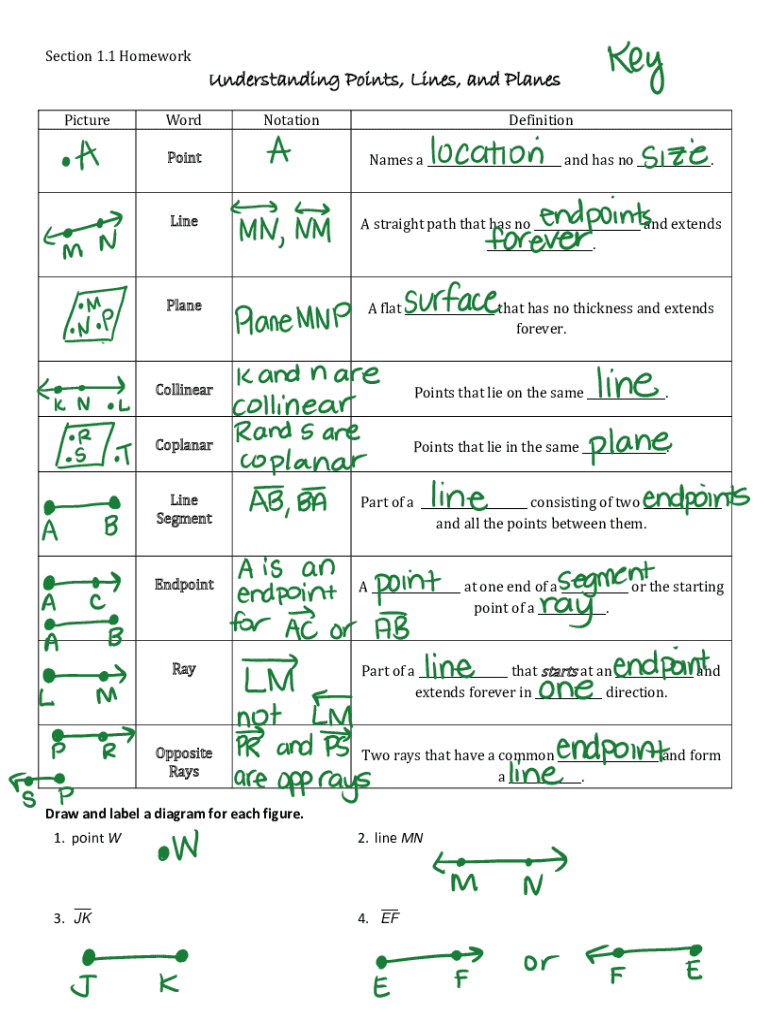 Section 1.1 Homework
Key
Understanding Points, Lines, and Planes
Picture Word Notation Definition
A Point A Names a location and has no size.
M N Line MN, NM A straight path that has no endpoints and extends
forever.
M N P Plane Plane MNP A flat surface that has no thickness and extends
forever.
K N L Collinear K and n are
collinear Points that lie on the same line.
R S T Coplanar R and S are
coplanar Points that lie in the same plane.
A B Line
Segment AB, BA Part of a line consisting of two endpoints
and all the points between them.
A C Endpoint A is an
endpoint
A B for AC or AB A point at one end of a segment or the starting
point of a ray.
L M Ray LM
not LM Part of a line that starts at an endpoint and
extends forever in one direction.
P R Opposite
Rays PR and PS
are opp rays Two rays that have a common endpoint and form
a line.
S P
Draw and label a diagram for each figure.
1. point W
W
2. line MN
M N
3. JK
J K
4. EF
E F or F E